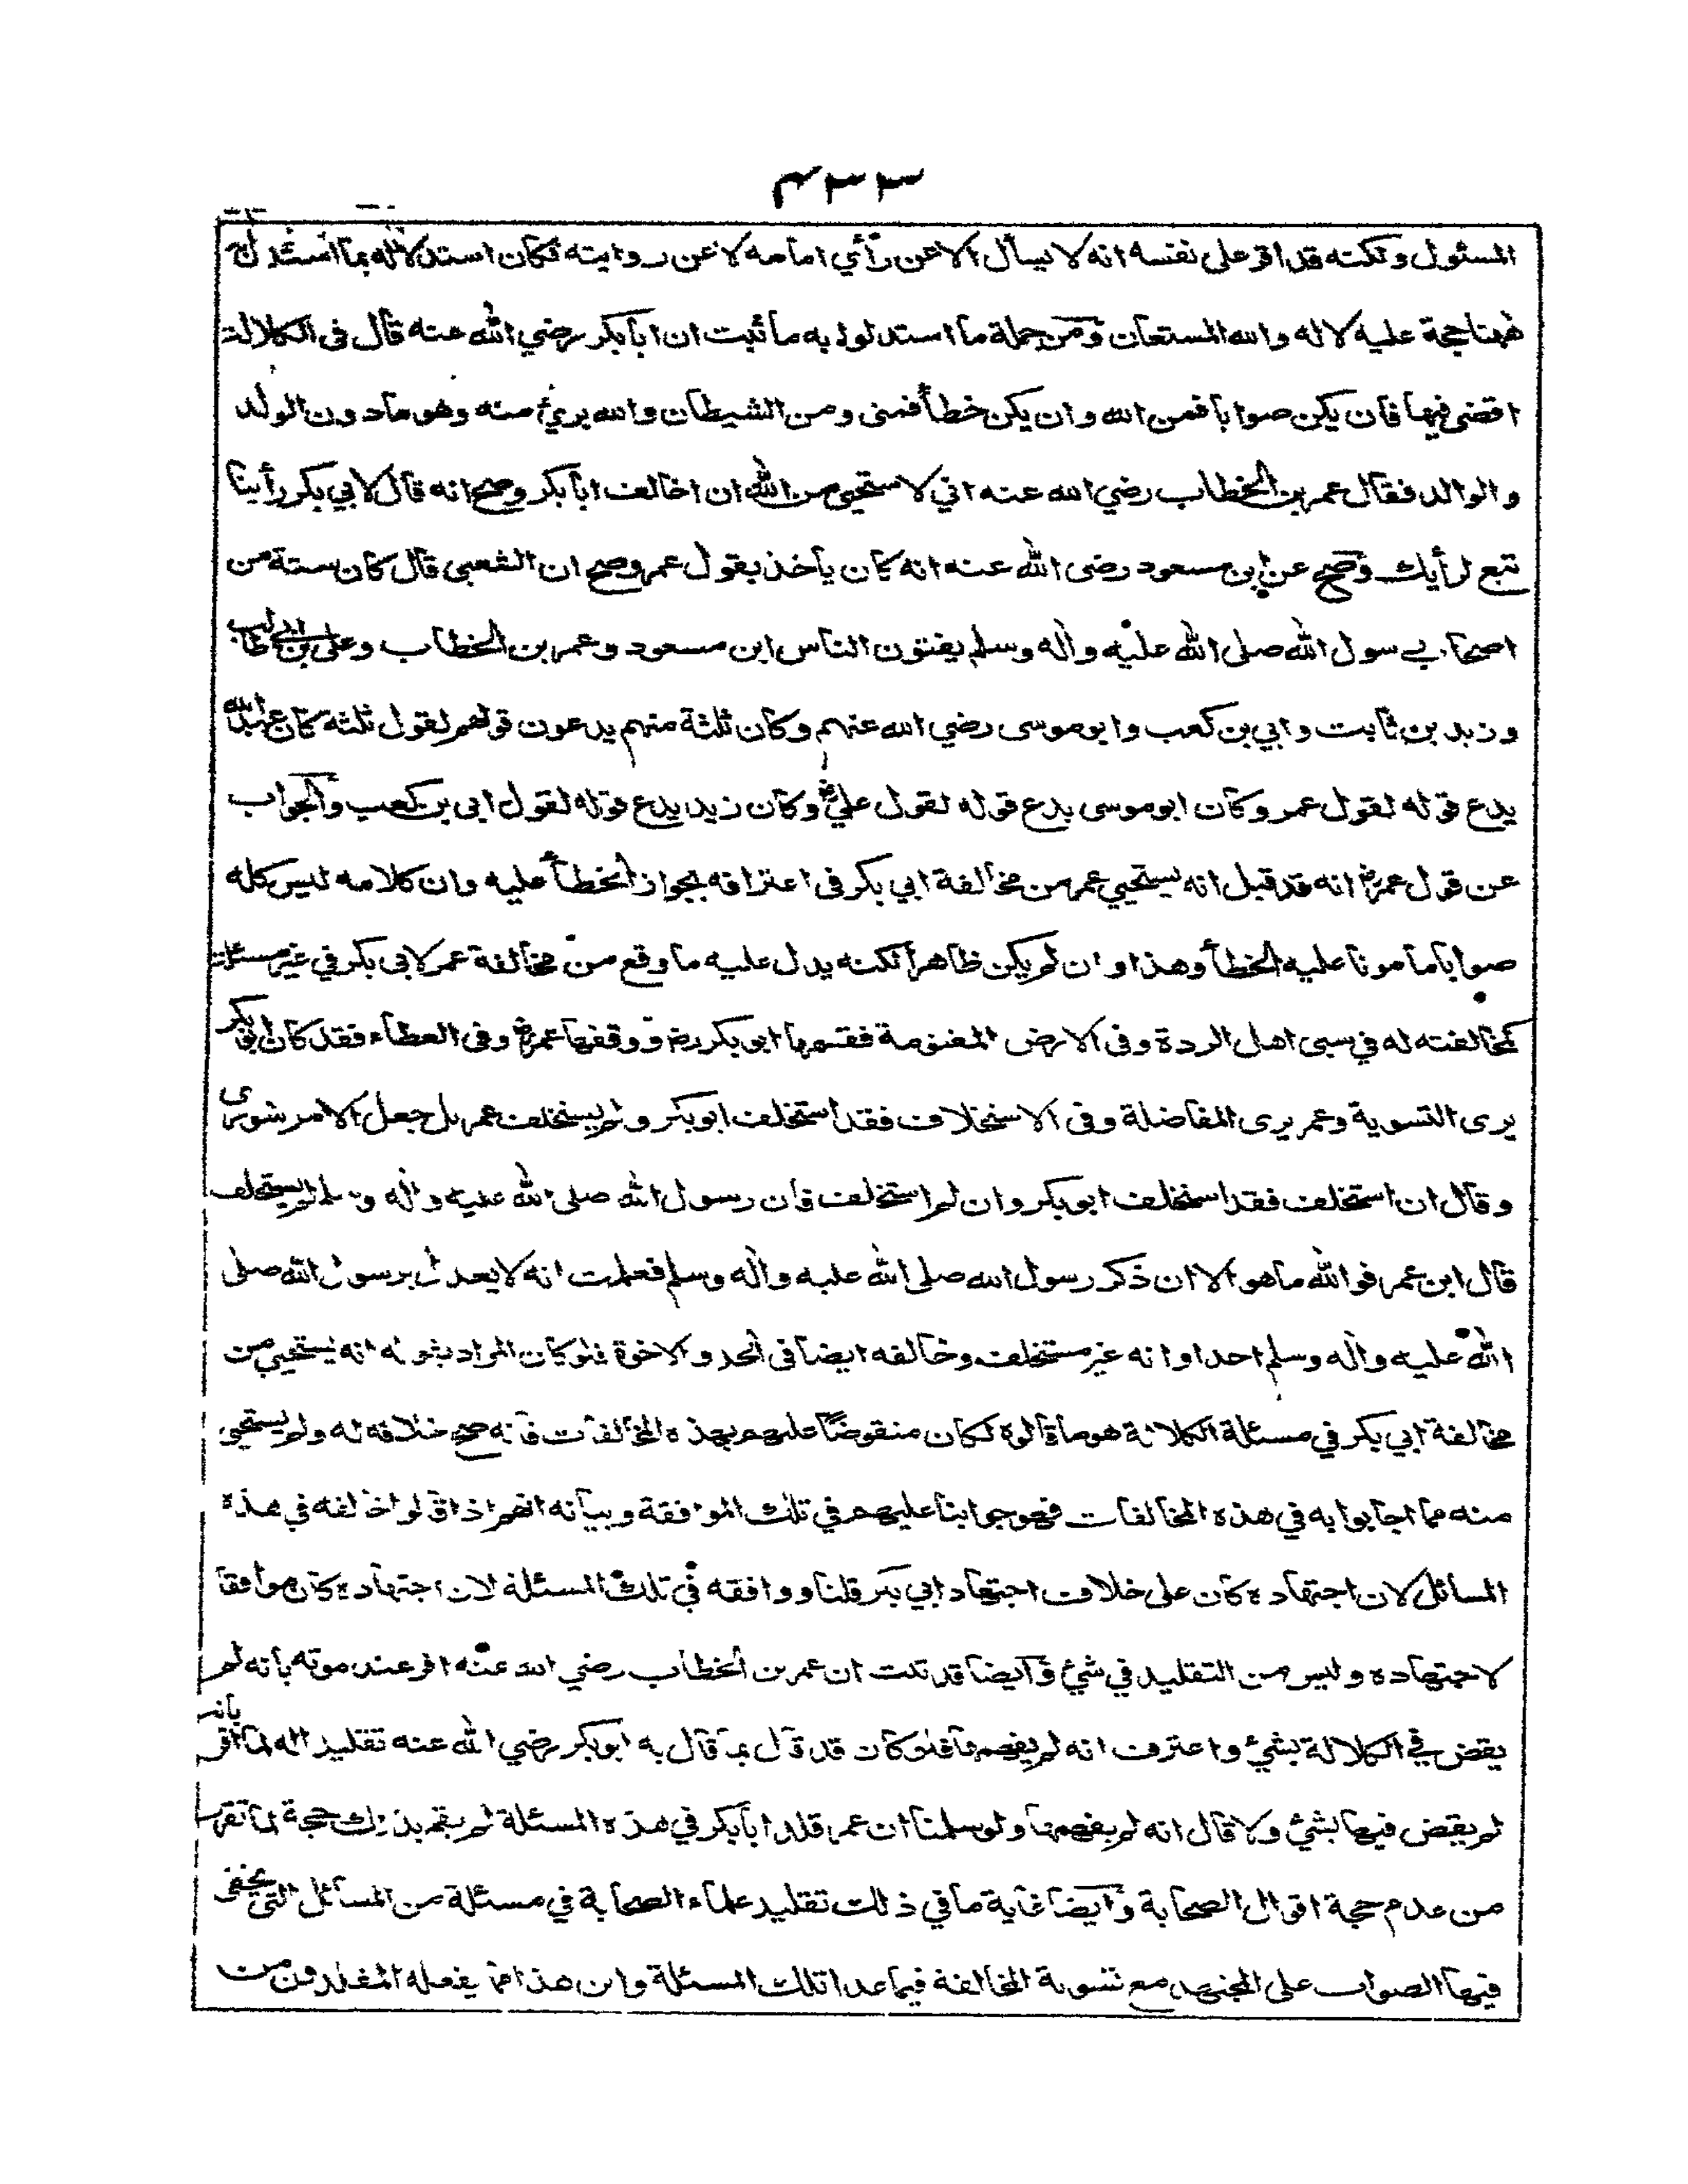 ٤٣٣
المسئول ولكنه قد اقر على نفسه انه لا يسأل الا عن رأي امامه لا عن روايته فكان استدلاله بما استدل به
ههنا حجة عليه لا له والله المستعان ومن جملة ما استدلوا به ما ثبت ان ابا بكر رضي الله عنه قال في الكلالة
اقضى فيها فان يكن صوابا فمن الله وان يكن خطأ فمنى ومن الشيطان والله برئ منه وهو مادون الولد
والوالد فقال عمر بن الخطاب رضي الله عنه اني لاستحيي من الله ان اخالف ابا بكر وصح انه قال لابي بكر رأينا
تبع لرأيك وصح عن ابن مسعود رضى الله عنه انه كان يأخذ بقول عمر وصح ان الشعبى قال كان ستة من
اصحاب رسول الله صلى الله عليه واله وسلم يفتون الناس ابن مسعود وعمر بن الخطاب وعلى بن ابي طالب
وزيد بن ثابت وابي بن كعب وابو موسى رضي الله عنهم وكان ثلثة منهم يدعون قولهم لقول ثلثة كان عبد الله
يدع قوله لقول عمر وكان ابو موسى يدع قوله لقول علي رض وكان زيد يدع قوله لقول ابى بن كعب والجواب
عن قول عمر رض انه قد قيل انه يستحيي عمر من مخالفة ابي بكر فى اعترافه بجواز الخطأ عليه وان كلامه ليس كله
صوابا مامونا عليه الخطأ وهذا وان لم يكن ظاهرا لكنه يدل عليه ما وقع من مخالفة عمر لابى بكر في غير مسئلة
كمخالفته له في سبى اهل الردة وفى الارض المغنومة فقسمها ابو بكر رض ووقفها عمر رض وفى العطاء فقد كان ابو بكر
يرى التسوية وعمر يرى المفاضلة وفى الاستخلاف فقد استخلف ابو بكر ولم يستخلف عمر بل جعل الامر شورى
وقال ان استخلف فقد استخلف ابو بكر وان لم استخلف فان رسول الله صلى الله عليه واله وسلم لم يستخلف
قال ابن عمر فوالله ما هو الا ان ذكر رسول الله صلى الله عليه واله وسلم فعلمت انه لا يعدل برسول الله صلى
الله عليه واله وسلم احدا وانه غير مستخلف وخالفه ايضا فى الجد والاخوة فلو كان المراد بقوله انه يستحيي من
مخالفة ابي بكر في مسئلة الكلالة هو ما قالوه لكان منقوضا عليهم بهذه المخالفات فانه صح خلافه له ولم يستحيى
منه مما اجابوا به في هذه المخالفات فهو جوابنا عليهم في تلك الموافقة وبيانه انهم اذا قالوا خالفه في هذه
المسائل لان اجتهاده كان على خلاف اجتهاد ابي بكر قلنا ووافقه في تلك المسئلة لان اجتهاده كان موافقا
لاجتهاده وليس من التقليد في شئ وايضا قد ثبت ان عمر بن الخطاب رضي الله عنه اقر عند موته بأنه لم
يقض في الكلالة بشئ واعترف انه لم يفهمها فلو كان قد قال بما قال به ابو بكر رضي الله عنه تقليدا له لما اقر بانه
لم يقض فيها بشئ ولا قال انه لم يفهمها ولو سلمنا ان عمر قلد ابا بكر في هذه المسئلة لم يقم بذلك حجة لما تقرر
من عدم حجة اقوال الصحابة وايضا غاية ما في ذلك تقليد علماء الصحابة في مسئلة من المسائل التى يخفى
فيها الصواب على المجتهد مع تسوية المخالفة فيما عدا تلك المسئلة واين هذا مما يفعله المقلدون من